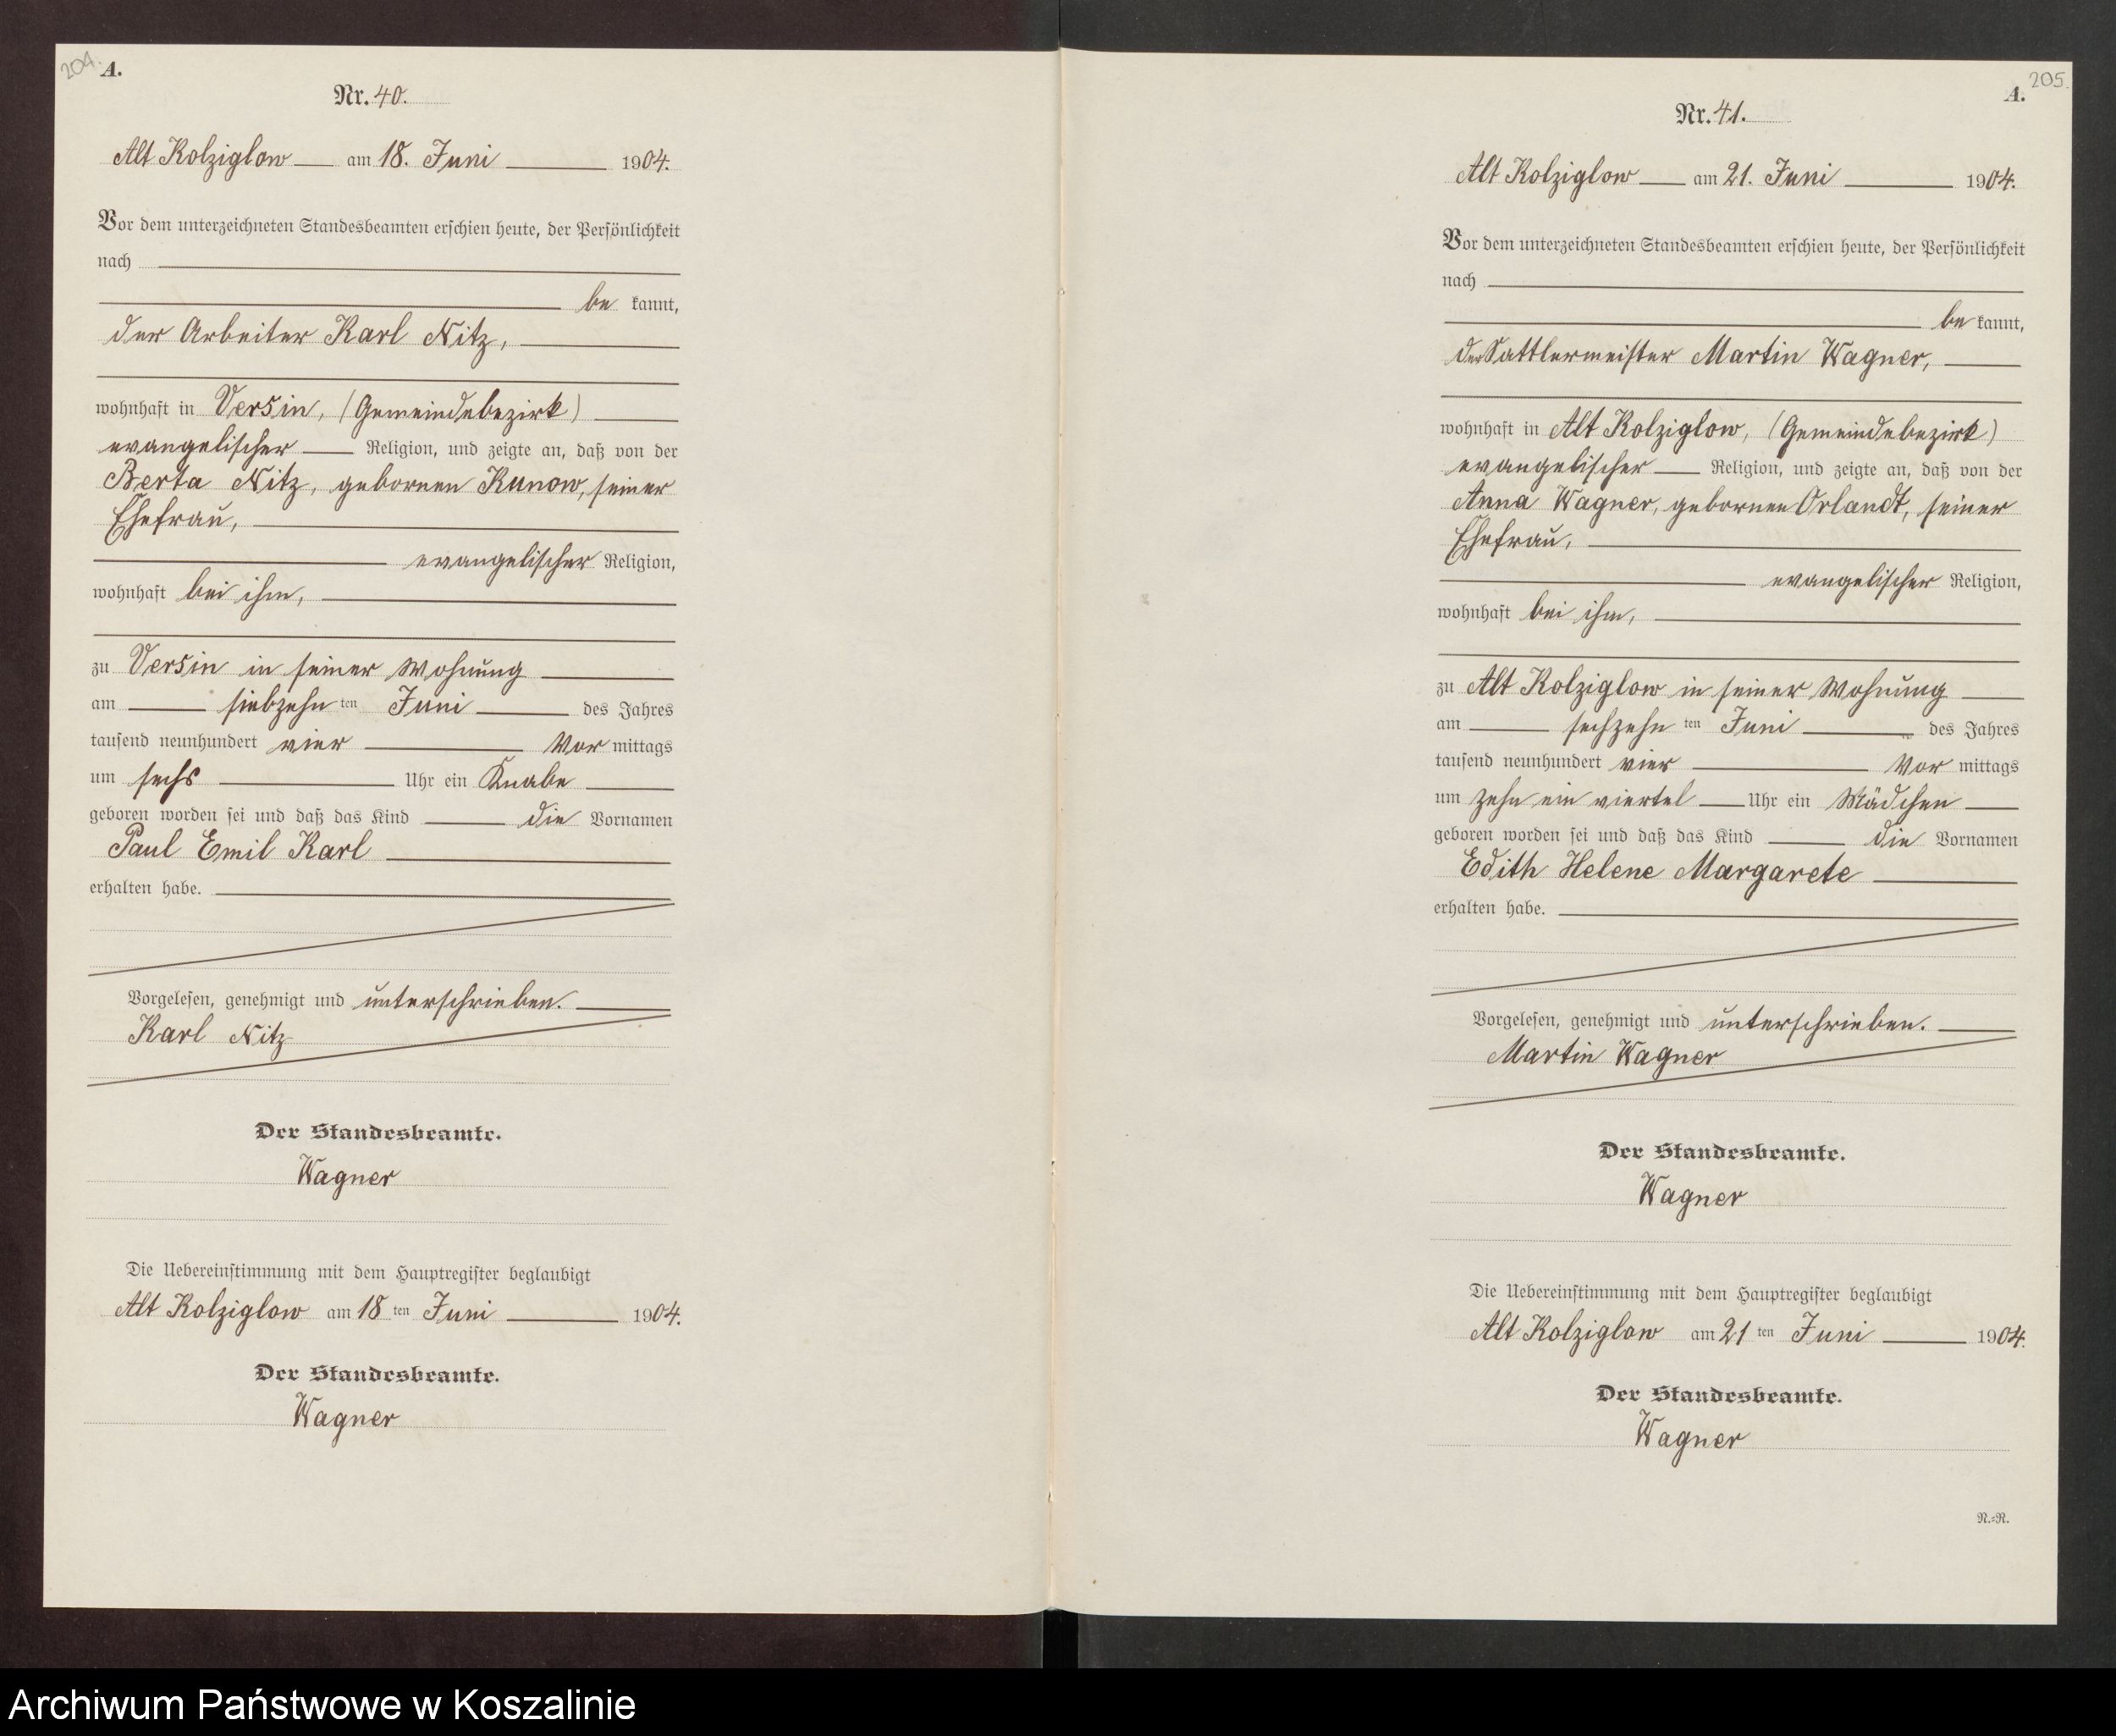 204.
A.
Nr. 40.
Alt Kolziglow am 18. Juni 1904.
Vor dem unterzeichneten Standesbeamten erschien heute, der Persönlichkeit
nach
be kannt,
der Arbeiter Karl Nitz,
wohnhaft in Versin, (Gemeindebezirk)
evangelischer Religion, und zeigte an, daß von der
Berta Nitz, gebornen Kunow, seiner
Ehefrau,
evangelischer Religion,
wohnhaft bei ihm,
zu Versin in seiner Wohnung
am siebzehn ten Juni des Jahres
tausend neunhundert vier Vor mittags
um sechs Uhr ein Knabe
geboren worden sei und daß das Kind die Vornamen
Paul Emil Karl
erhalten habe.
Vorgelesen, genehmigt und unterschrieben.
Karl Nitz
Der Standesbeamte.
Wagner
Die Uebereinstimmung mit dem Hauptregister beglaubigt
Alt Kolziglow am 18 ten Juni 1904.
Der Standesbeamte.
Wagner
205.
A.
Nr. 41.
Alt Kolziglow am 21. Juni 1904.
Vor dem unterzeichneten Standesbeamten erschien heute, der Persönlichkeit
nach
be kannt,
der Sattlermeister Martin Wagner,
wohnhaft in Alt Kolziglow, (Gemeindebezirk)
evangelischer Religion, und zeigte an, daß von der
Anna Wagner, gebornen Orlandt, seiner
Ehefrau,
evangelischer Religion,
wohnhaft bei ihm,
zu Alt Kolziglow in seiner Wohnung
am sechzehn ten Juni des Jahres
tausend neunhundert vier Vor mittags
um zehn ein viertel Uhr ein Mädchen
geboren worden sei und daß das Kind die Vornamen
Edith Helene Margarete
erhalten habe.
Vorgelesen, genehmigt und unterschrieben.
Martin Wagner
Der Standesbeamte.
Wagner
Die Uebereinstimmung mit dem Hauptregister beglaubigt
Alt Kolziglow am 21 ten Juni 1904.
Der Standesbeamte.
Wagner
N.=R.
Archiwum Państwowe w Koszalinie